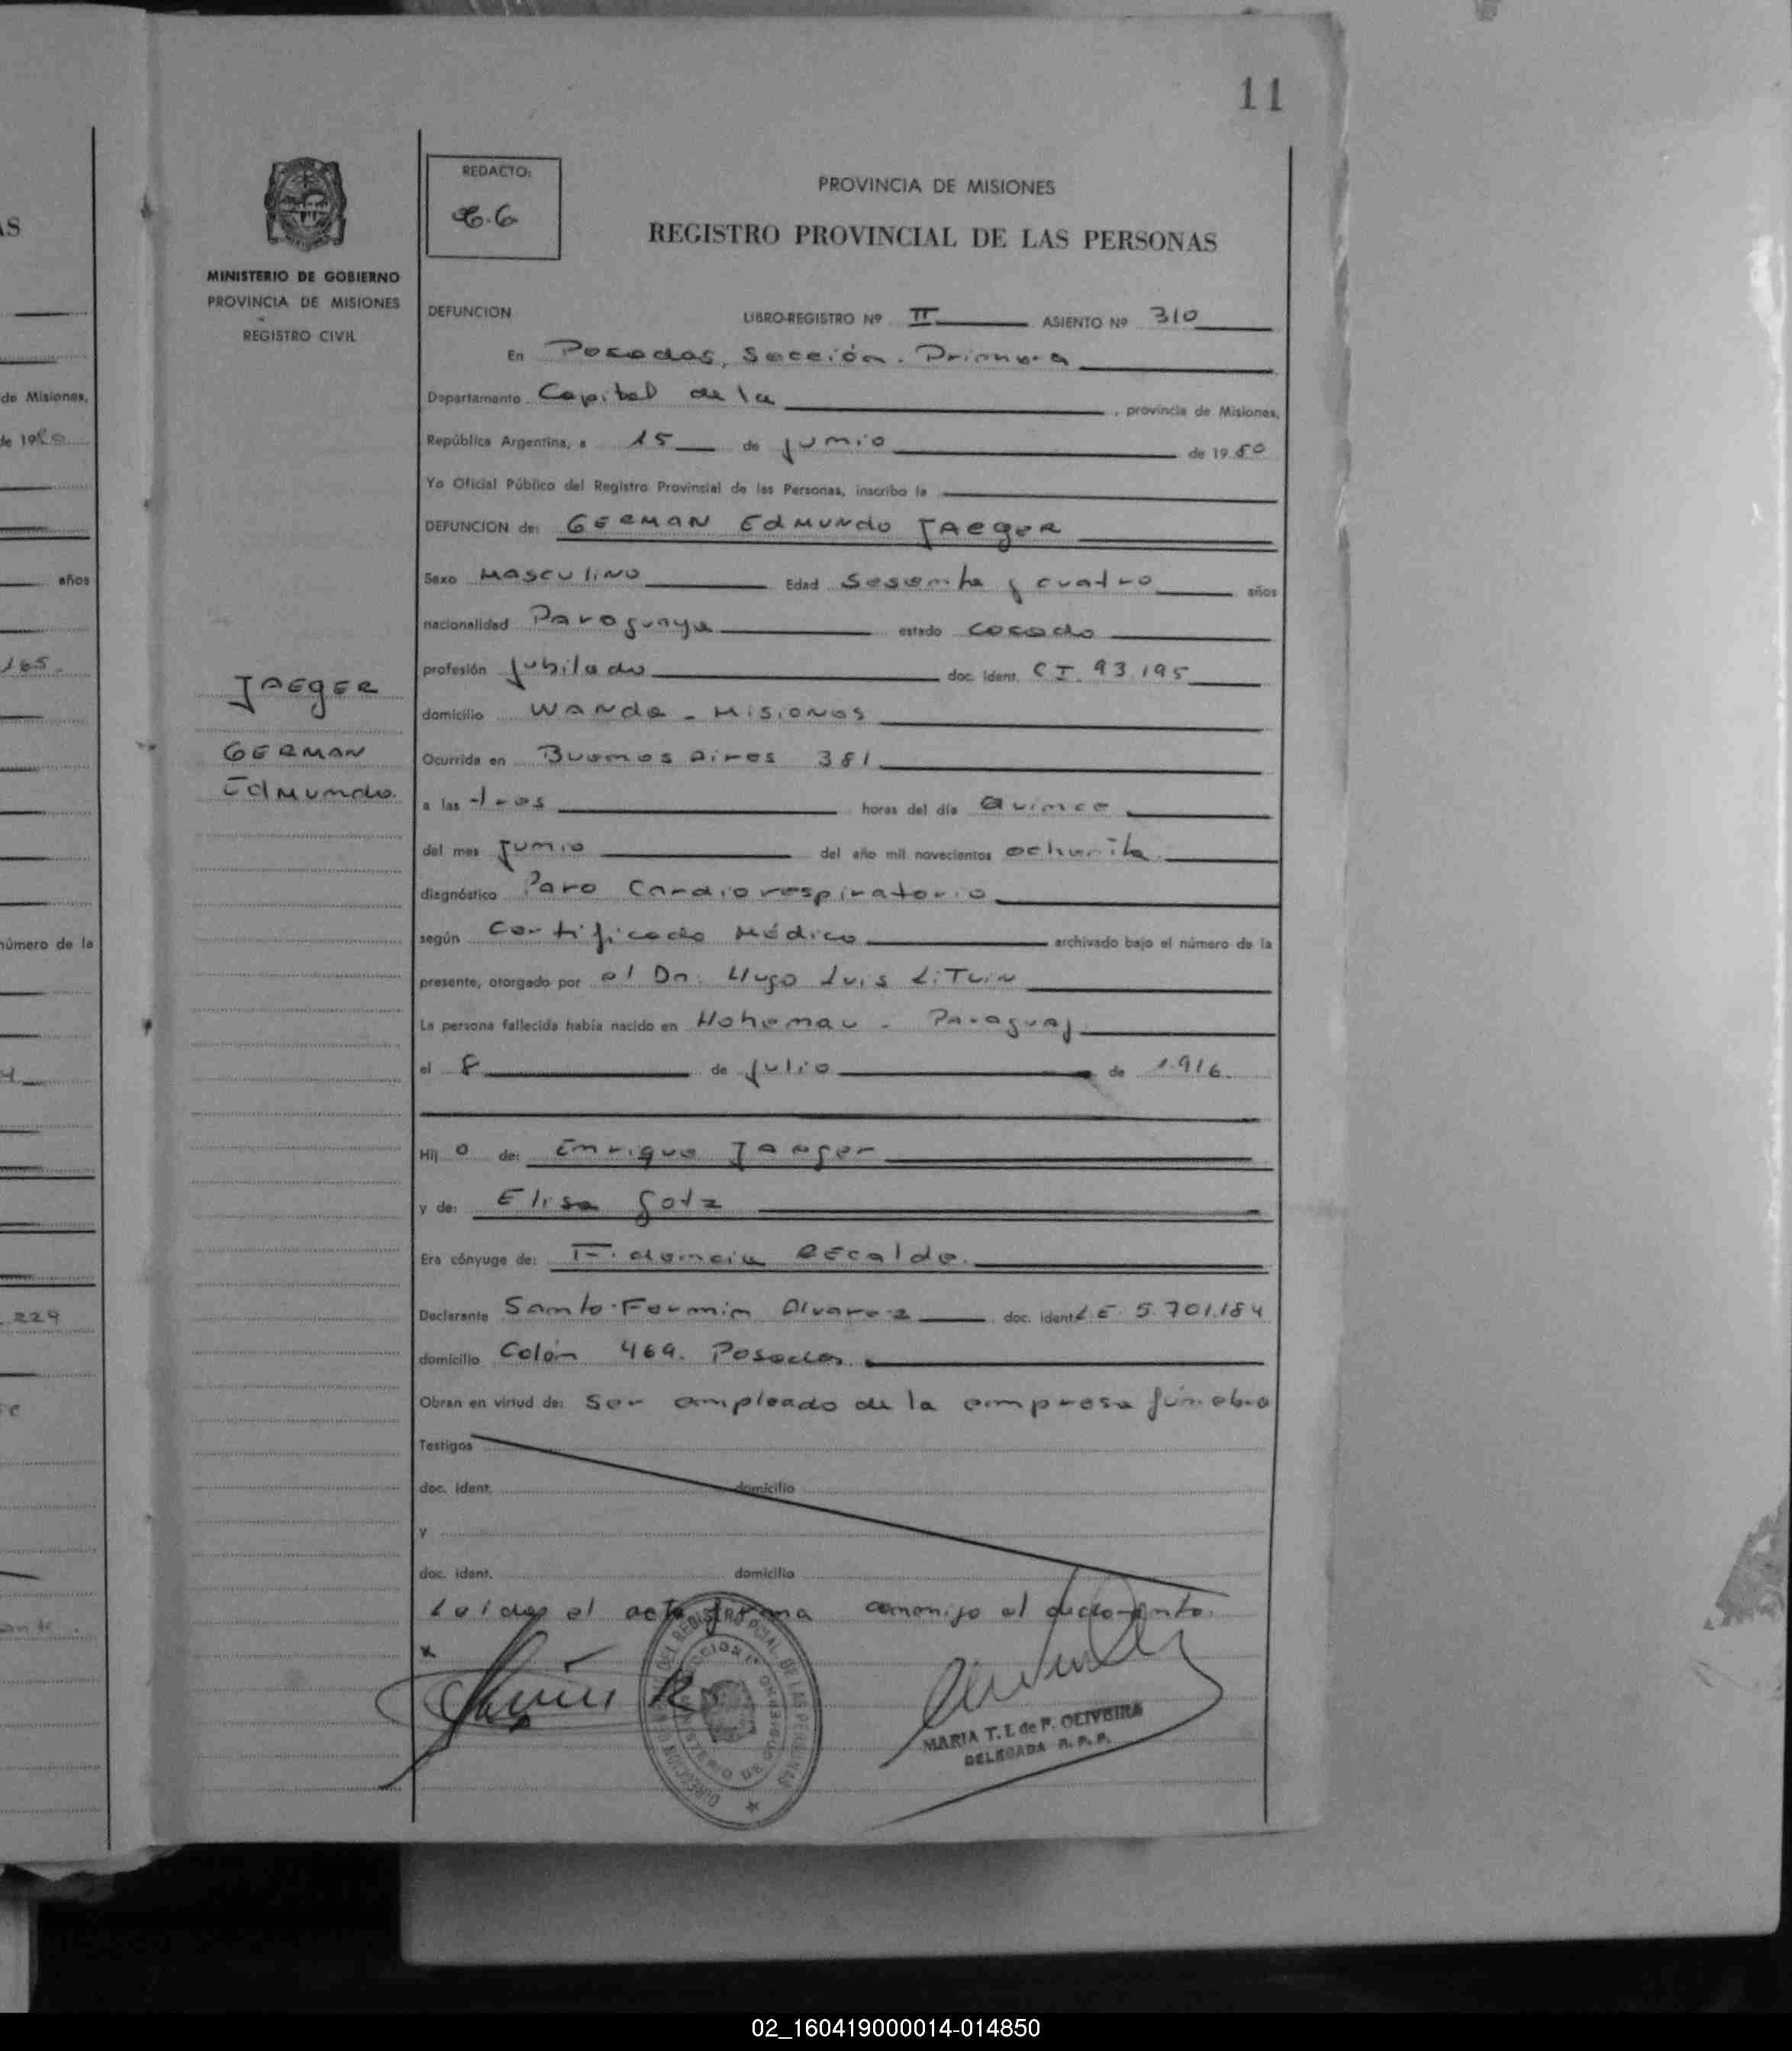 11
REDACTO:
PROVINCIA DE MISIONES
REGISTRO PROVINCIAL DE LAS PERSONAS
MINISTERIO DE GOBIERNO
PROVINCIA DE MISIONES
REGISTRO CIVIL
DEFUNCION LIBRO-REGISTRO Nº II ASIENTO Nº 310
En Posadas, Sección. Primera
Departamento Capital de la , provincia de Misiones,
República Argentina, a 15 de junio de 1980
Yo Oficial Público del Registro Provincial de las Personas, inscribo la
DEFUNCION de: GERMAN EDMUNDO JAEGER
Sexo MASCULINO Edad Sesenta y cuatro años
nacionalidad Paraguaya estado casado
profesión jubilado doc. ident. C I. 93.195
domicilio WANDA - MISIONES
Ocurrida en Buenos Aires 381
a las tres horas del día Quince
del mes junio del año mil novecientos ochenta
diagnóstico Paro Cardiorespiratorio
según Certificado Médico archivado bajo el número de la
presente, otorgado por el Dr. Hugo Luis LiTvin
La persona fallecida había nacido en Hohenau - Paraguay
el 8 de julio de 1.916.
Hijo de: Enrique Jaeger
y de: Elisa Gotz
Era cónyuge de: Fidencia RECalde.
Declarante Santo Fermin Alvarez doc. ident L E 5.701.184
domicilio Colón 469. Posadas
Obran en virtud de: Ser empleado de la empresa fúnebre
Testigos
doc. ident. domicilio
y
doc. ident. domicilio
Leida el acta firma conmigo el declarante.
x
DIRECCION GENERAL DEL REGISTRO PCIAL. DE LAS PERSONAS
SECCION 1ª
MINISTERIO DE GOBIERNO
MARIA T. I. de P. OLIVEIRA
DELEGADA R. P. P.
JAEGER
GERMAN
EDMUNDO
AS
de Misiones,
de 1980
años
165.
número de la
4
229
02_160419000014-014850